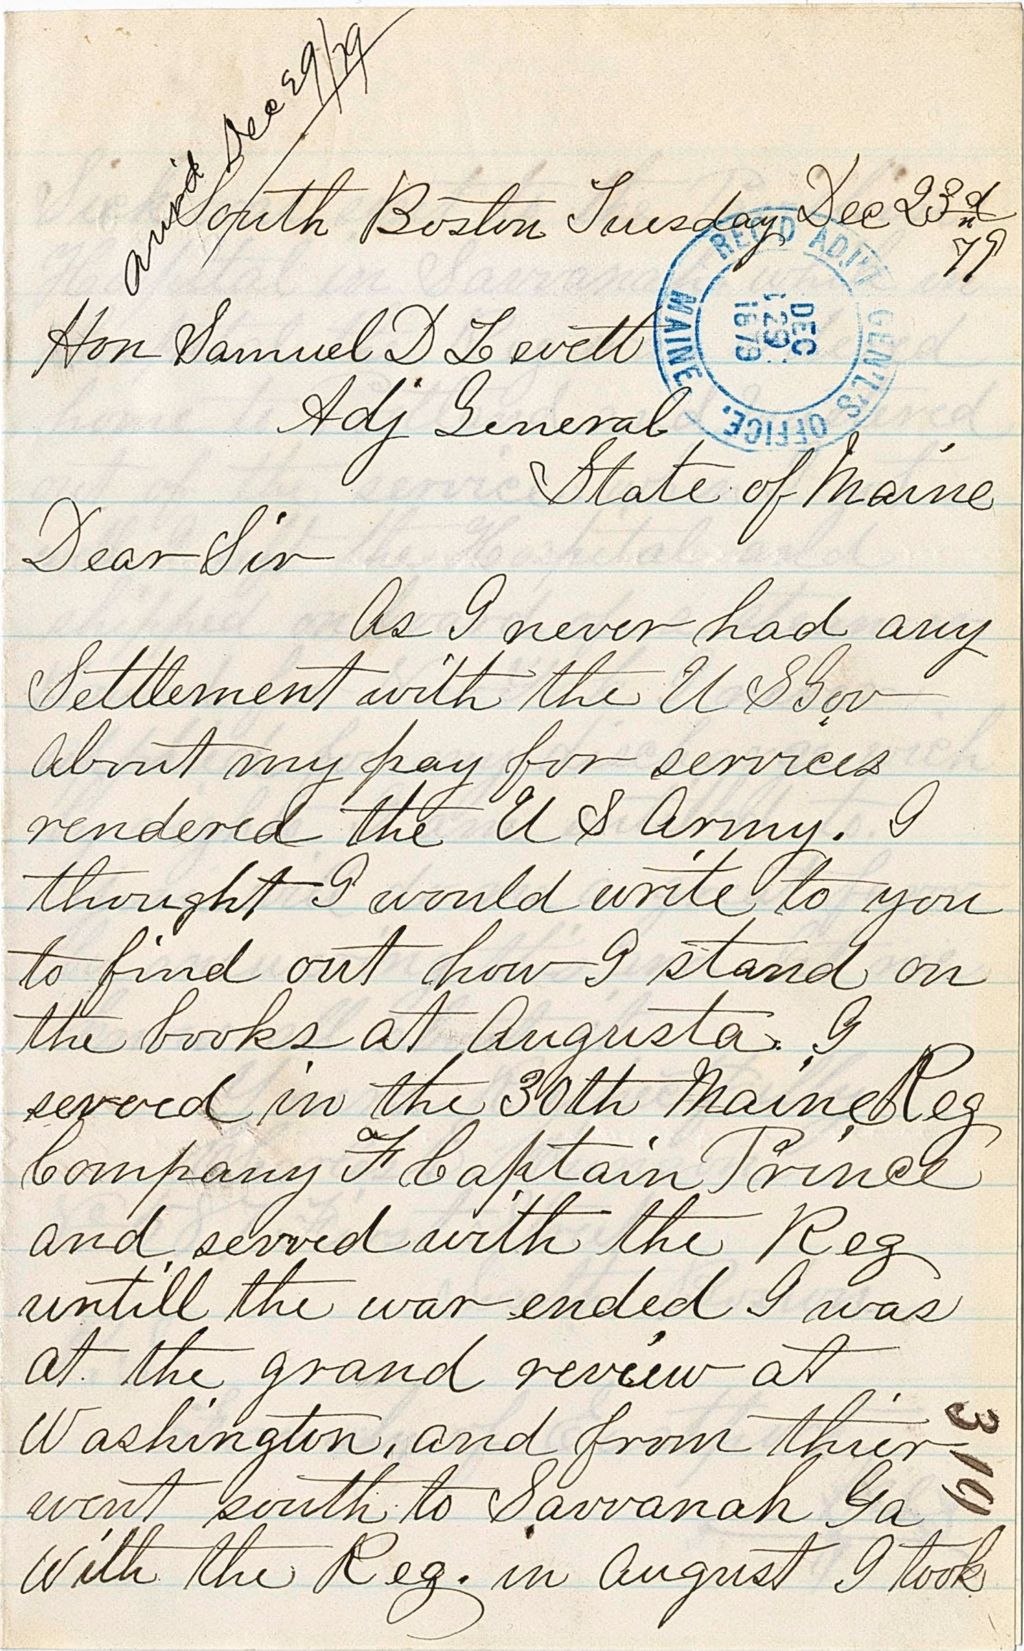 ans'd Dec 29/79
South Boston Tuesday Dec 23rd
79
REC'D ADJ'T GEN'L'S OFFICE, MAINE
DEC
29
1879
Hon Samuel D Levett
Adj General
State of Maine
Dear Sir
As I never had any
Settlement with the U S Gov
About my pay for services
rendered the U S Army. I
thought I would write to you
to find out how I stand on
the books at Augusta. I
served in the 30th Maine Reg
Company F Captain Prince
and served with the Reg
untill the war ended I was
at the grand review at
Washington, and from thier
went south to Savvanah Ga
With the Reg. in August I took
319